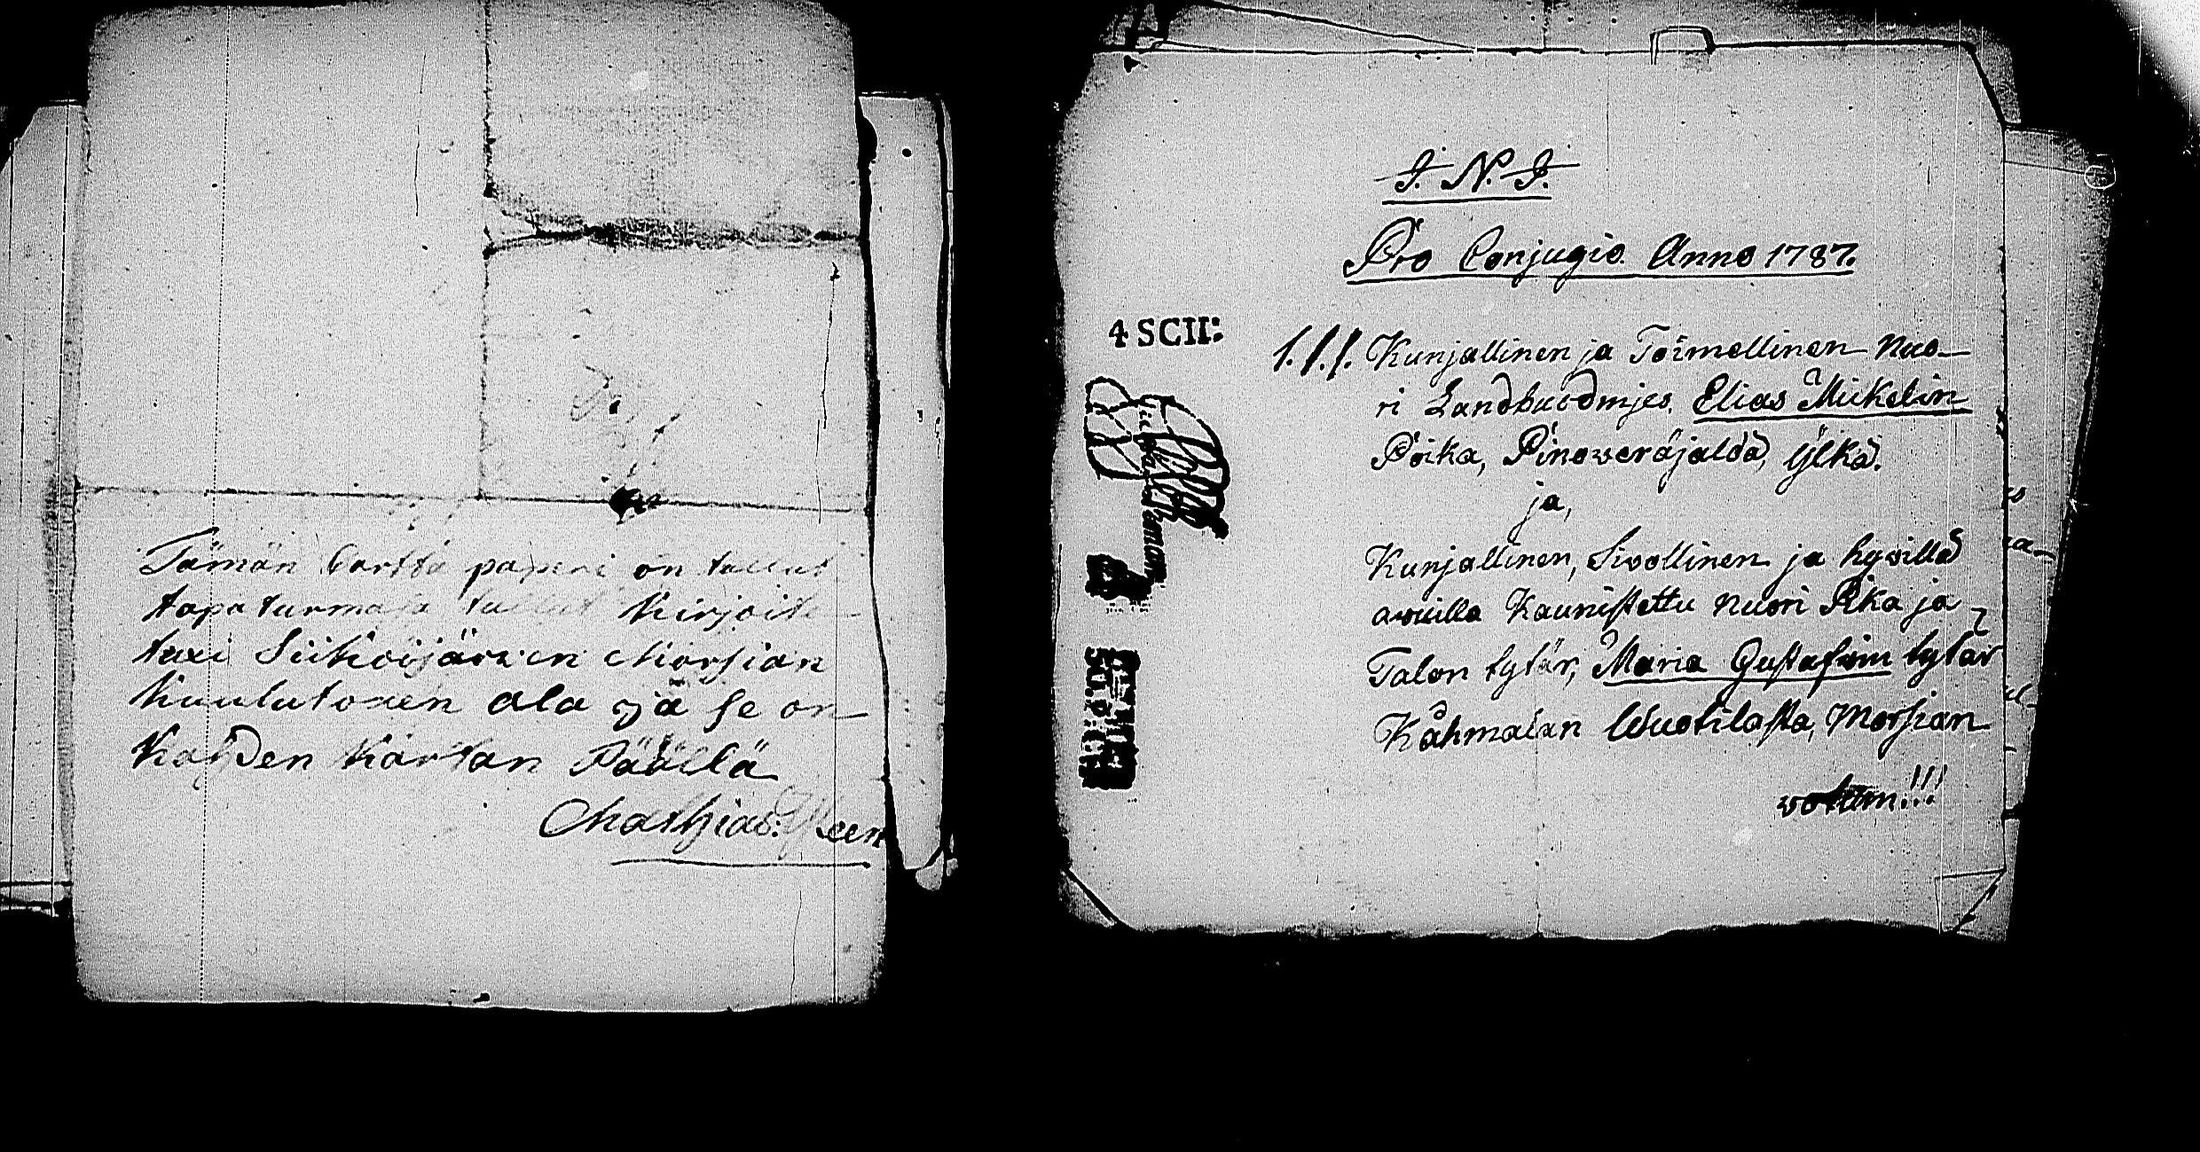 Tämän Cartta paperi on tullut
tapaturmasa tullut Kirjoite-
tuxi Siihoijärwen Morsian
Kuulutoxen ala ja se on
Kahden Kärtan Päällä
Mathias
J. N. J.
Pro Conjugio Anno 1787.
4 SCH:
1. Kunjallinen ja Toimellinen Nuo-
ri Landbuodmjes. Elias Mickelin
Poika, Pinoweräjaldä, Ylkä.
ja,
Kunjallinen, Siwollinen ja hywillä
awuilla Kaunistettu Nuori Pika ja
Talon tytär, Maria Gustafwin tytär
Kåhmalan Wuotilasta, Morsian